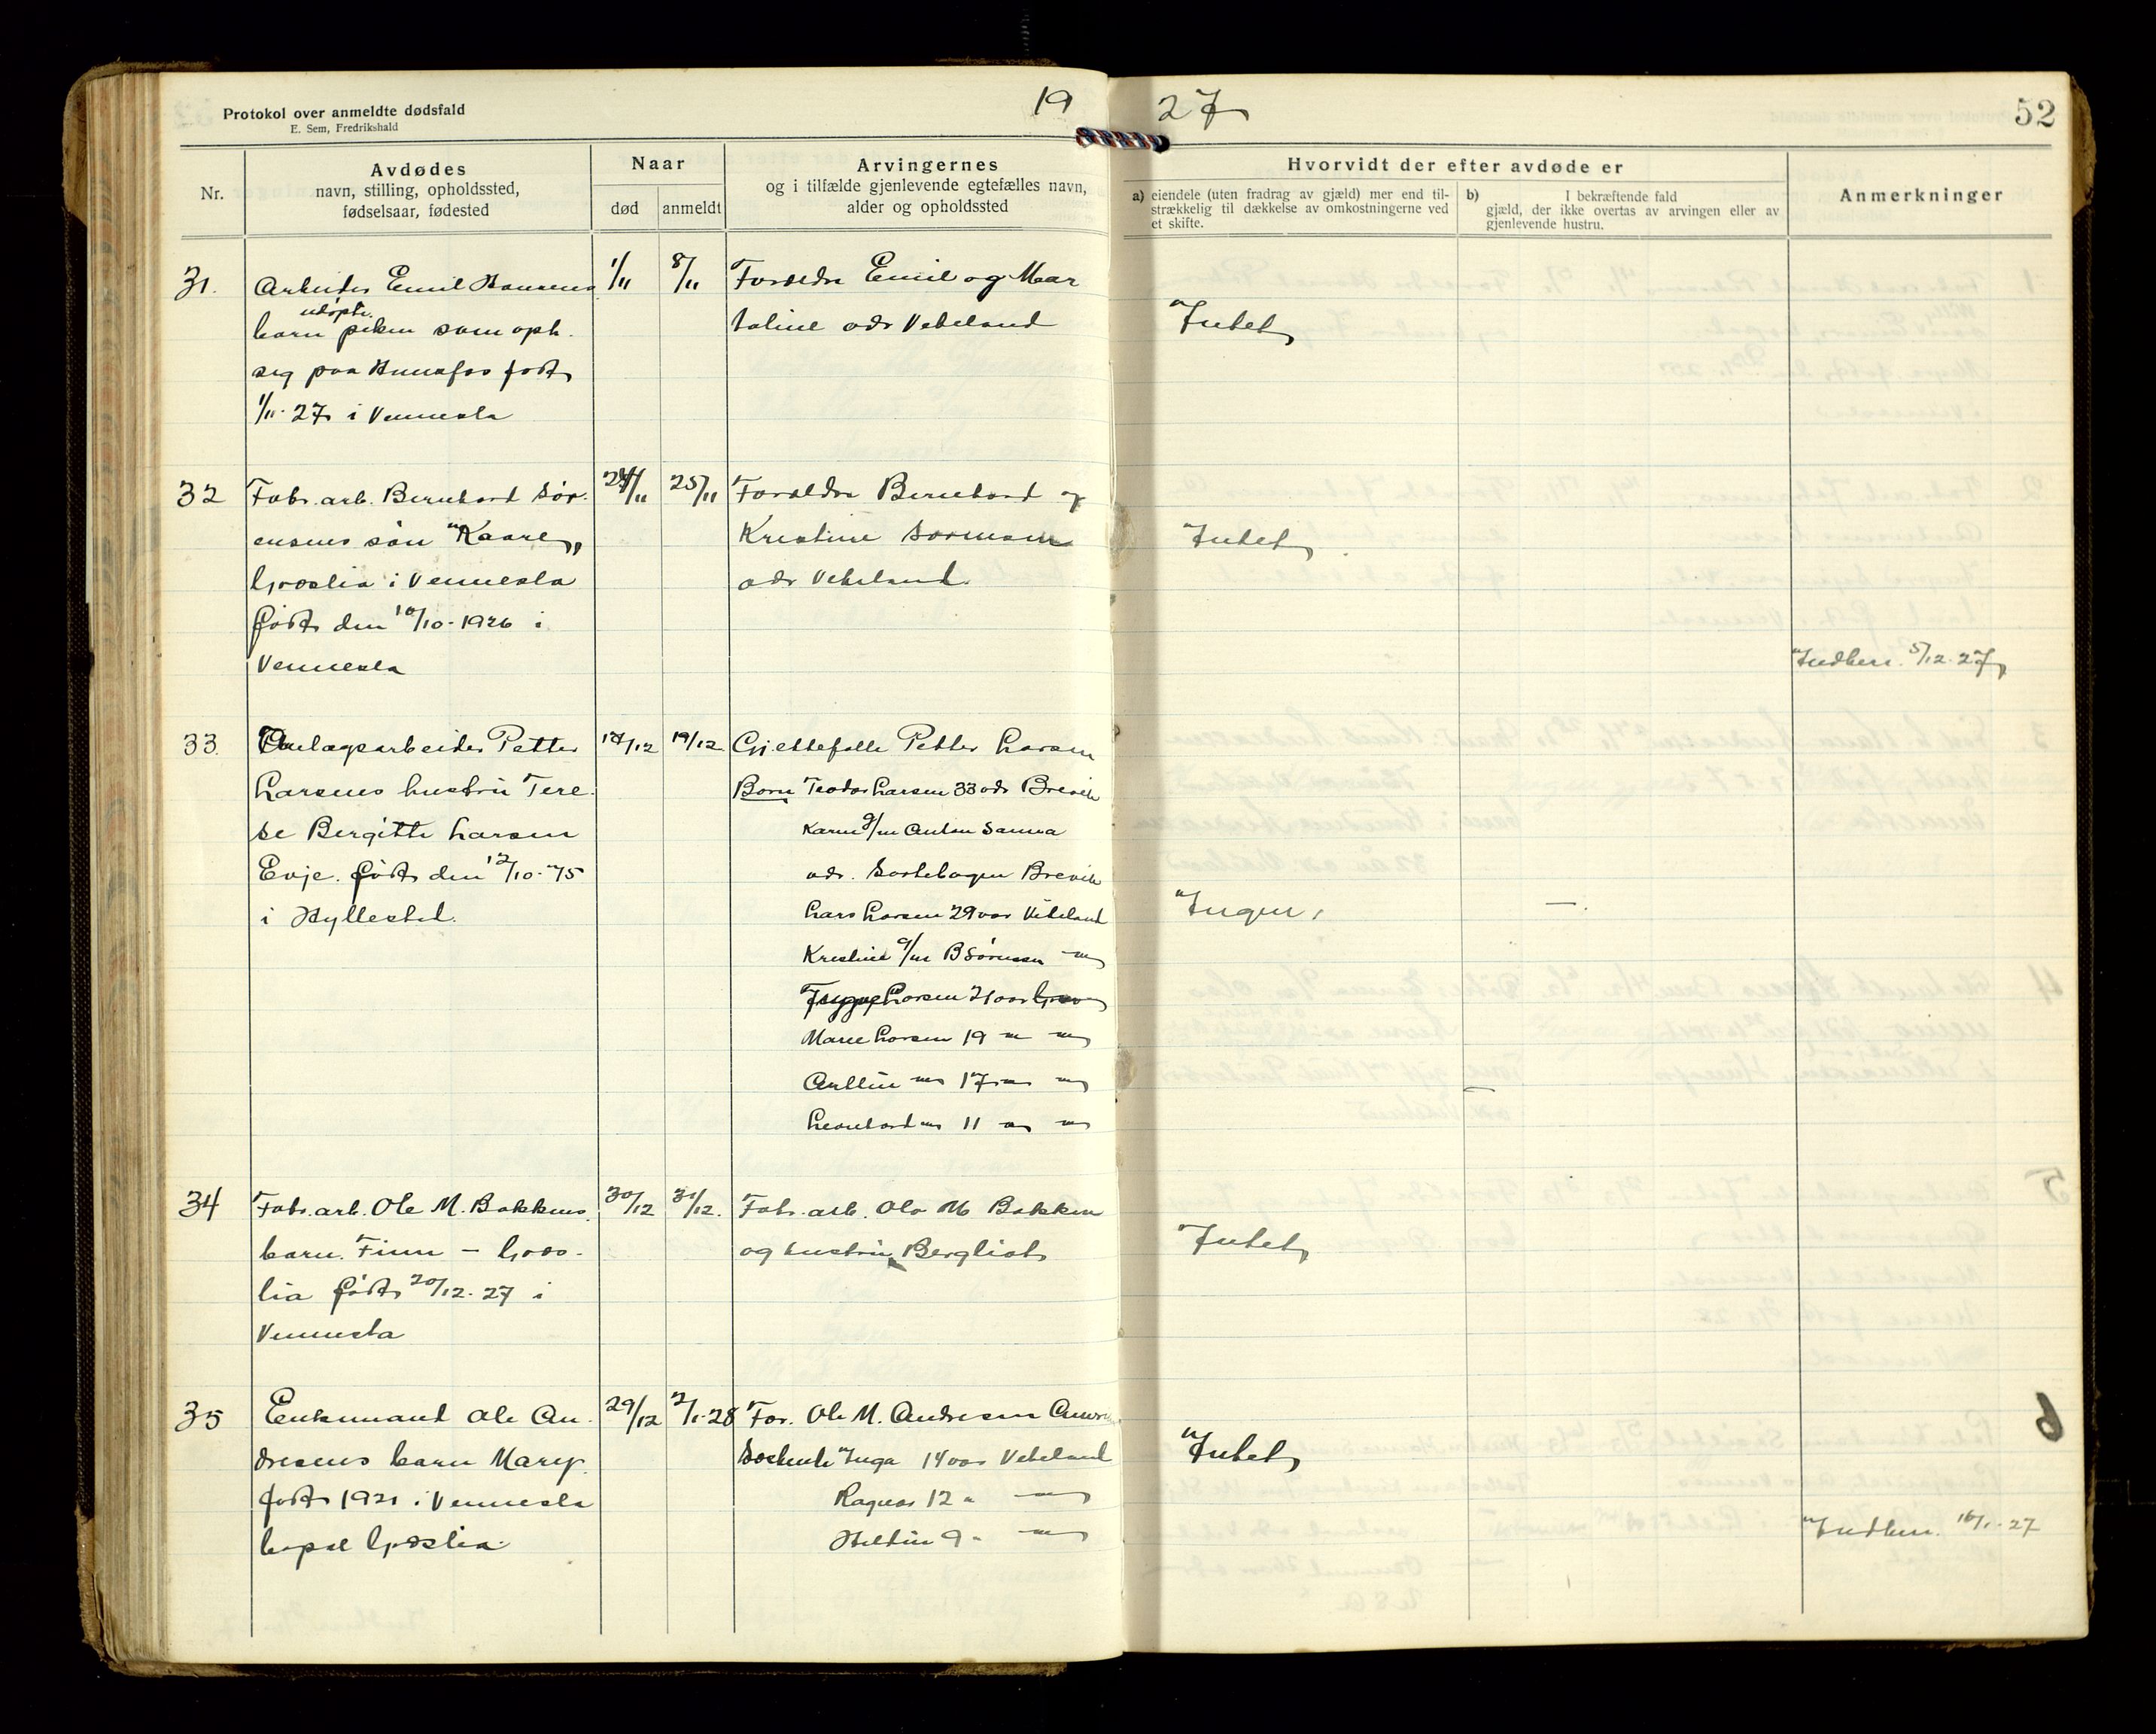 Protokol over anmeldte dødsfald
E. Sem, Fredrikshald
19 27
52
Nr.
Avdødes
navn, stilling, opholdssted,
fødselsaar, fødested
Naar
død
anmeldt
Arvingernes
og i tilfælde gjenlevende egtefælles navn,
alder og opholdssted
Hvorvidt der efter avdøde er
a) eiendele (uten fradrag av gjæld) mer end til-
strækkelig til dækkelse av omkostningerne ved
et skifte.
b) I bekræftende fald
gjæld, der ikke overtas av arvingen eller av
gjenlevende hustru.
Anmerkninger
31.
Arbeider Emil Hansens
udøpte
barn piken som oph.
seg paa Hunsfos født
1/11-27 i Vennesla
1/11
8/11
Foreldre Emil og Mar
taline adr Vikeland
Intet
32
Fabr. arb. Bernhard Sør-
ensens søn "Kaare"
Graslia i Vennesla
født den 10/10-1926 i
Vennesla
24/11
25/11
Foreldre Bernhard og
Kristine Sørensen
adr Vikeland.
Intet
Indber. 5/12-27
33.
Anlægsarbeider Petter
Larsens hustru Tere-
se Bergitte Larsen
Evje. født den 12/10-75
i Hyllestad.
17/12
19/12
Gjettefelle Petter Larsen
Børn Teodor Larsen 33 adr Brevik
Karen g/m Anton Sanna
adr. Sostebagen Brevik
Lars Larsen 29 aar Vikeland
Kristine g/m B Sørensen —"—
Trygve Larsen 21 aar
Marie Larsen 19 —"— —"—
—"— 17 —"— —"—
Leonhard —"— 11 —"— —"—
Ingen
—
34
Fabr. arb. Ole M. Bakkens
barn. Finn – Gras-
lia født 20/12-27 i
Vennesla
30/12
31/12.
Fabr. arb. Ole M Bakken
og hustru Bergliot
Intet
35
Enkemand Ole An-
dresens barn Mary
født 1921 i Vennesla
bopæl Graslia
29/12
2/1-28
Far. Ole M. Andresen
Søskende Inga 14 aar Vikeland
Ragnar 12 " —"—
9 " —"—
Intet
Indber. 16/1-27